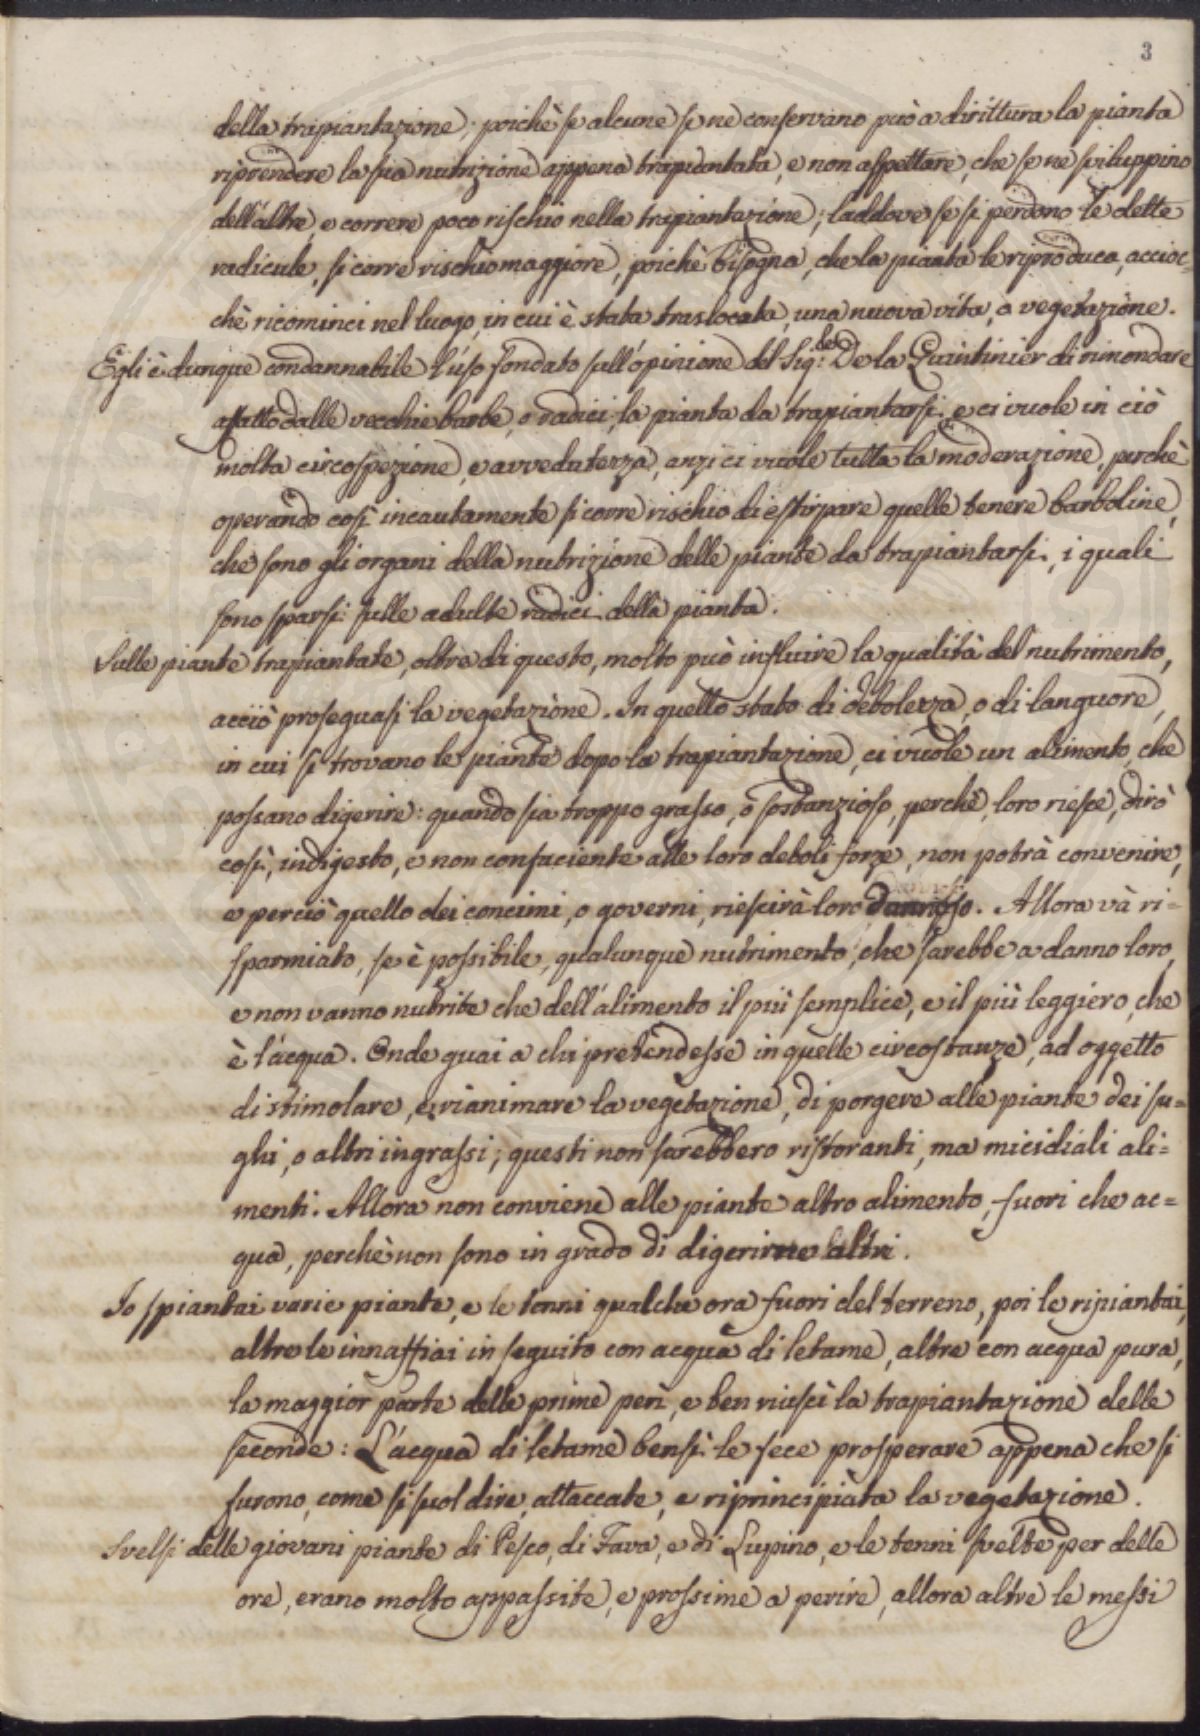 3
della trapiantazione; poichè se alcune se ne conservano può a dirittura la pianta
riprendere la sua nutrizione appena trapiantata, e non aspettare, che se ne sviluppino
dell'altre, e correre poco rischio nella trapiantazione; laddove se si perdono le dette
radicule, si corre rischio maggiore, poichè bisogna, che la pianta le riproduca, accioc=
chè ricominci nel luogo, in cui è stata traslocata, una nuova vita, o vegetazione.
Egli è dunque condannabile l'uso fondato sull'opinione del Sig: De la Quintinier di rimondare
affatto dalle vecchie barbe, o radici, la pianta da trapiantarsi, e ci vuole in ciò
molta circospezione, e avvedutezza, anzi ci vuole tutta la moderazione, perchè
operando così incautamente si corre rischio di estirpare quelle tenere barboline,
che sono gli organi della nutrizione delle piante da trapiantarsi, i quali
sono sparsi sulle adulte radici della pianta.
Sulle piante trapiantate, oltre di questo, molto può influire la qualità del nutrimento,
acciò proseguasi la vegetazione. In quello stato di debolezza, o di languore,
in cui si trovano le piante dopo la trapiantazione, ci vuole un alimento, che
possano digerire: quando sia troppo grasso, o sostanzioso, perchè, loro riesce, dirò
così, indigesto, e non confaciente alle loro deboli forze, non potrà convenire,
e perciò quello dei concimi, o governi, riescirà loro dannoso. Allora và ri=
sparmiato, se è possibile, qualunque nutrimento, che sarebbe a danno loro,
e non vanno nutrite che dell'alimento il più semplice, e il più leggiero, che
è l'acqua. Onde guai a chi pretendesse in quelle circostanze, ad oggetto
di stimolare, e rianimare la vegetazione, di porgere alle piante dei su=
ghi, o altri ingrassi; questi non sarebbero ristoranti, ma micidiali ali=
menti. Allora non conviene alle piante altro alimento, fuori che ac=
qua, perchè non sono in grado di digerirne altri.
Io spiantai varie piante, e le tenni qualche ora fuori del terreno, poi le ripiantai,
altre le innaffiai in seguito con acqua di letame, altre con acqua pura,
la maggior parte delle prime perì, e ben riuscì la trapiantazione delle
seconde: L'acqua di letame bensì le fece prosperare appena che si
furono, come si suol dire, attaccate, e riprincipiata la vegetazione.
Svelsi delle giovani piante di Pesco, di Fava, e di Lupino, e le tenni svelte per delle
ore, erano molto appassite, e prossime a perire, allora altre le messi